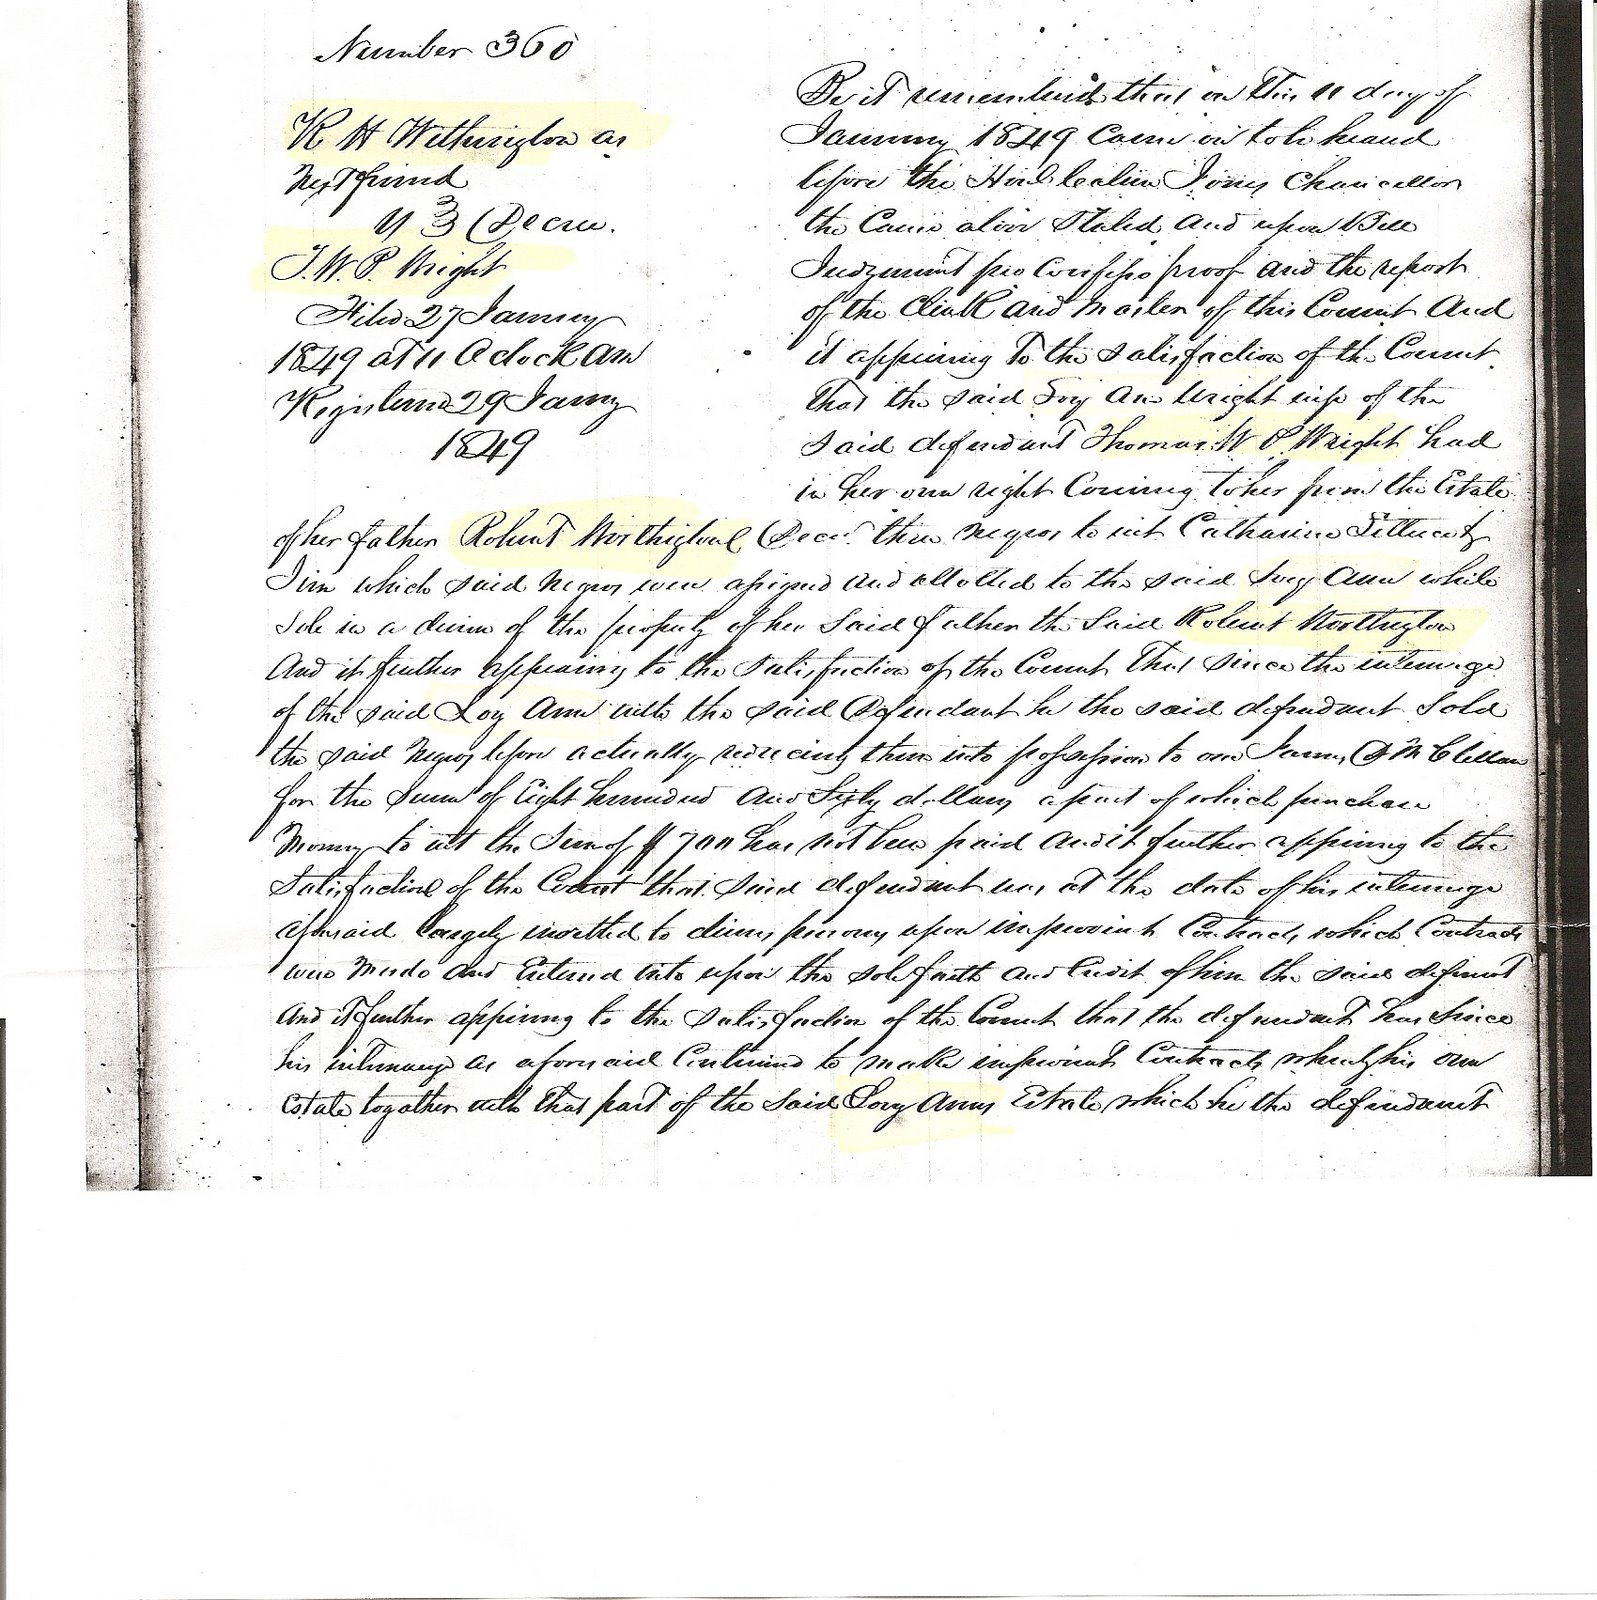 Number 360
R H Wethington as
Next friend
3 (Decree.
T. W. P. Wright
Filed 27 January
1849 at 11 Oclock Am
Registered 29 Jany
1849
Be it remembered that on this 11 day of
January 1849 Came on to be heard
before the Chancellor
the Cause above Stated and upon Bill
Judgment pro Confesso proof and the report
of the Clerk and Master of this Court And
it appearing to the satisfaction of the Court
that the said Ann Wright wife of the
said defendant Thomas W P Wright had
in her own right Coming to her from the Estate
of her father Robert Decd. three negros to wit Catharine
Jim which said negros were assigned and allotted to the said Ann while
Sole in a of the property of her Said father the Said Robert Northington
And it further appearing to the Satisfaction of the Court that since the intermarriage
of the said Ann with the said Defendant he the said defendant Sold
the said Negros before actually reducing them into possession to one James McClellan
for the Sum of Eight hundred And Sixty dollars a part of which purchase
Money to wit the Sum of $700 has not been paid and it further appearing to the
Satisfaction of the Court that said defendant was at the date of his intermarriage
aforesaid largely indebted to upon improvident Contracts which Contracts
were made and Entered into upon the sole faith and Credit of him the said defendant
And it further appearing to the satisfaction of the Court that the defendant has Since
his intermarriage as aforesaid Continued to make improvident Contracts his own
Estate together with that part of the Said Anns Estate which he the defendant